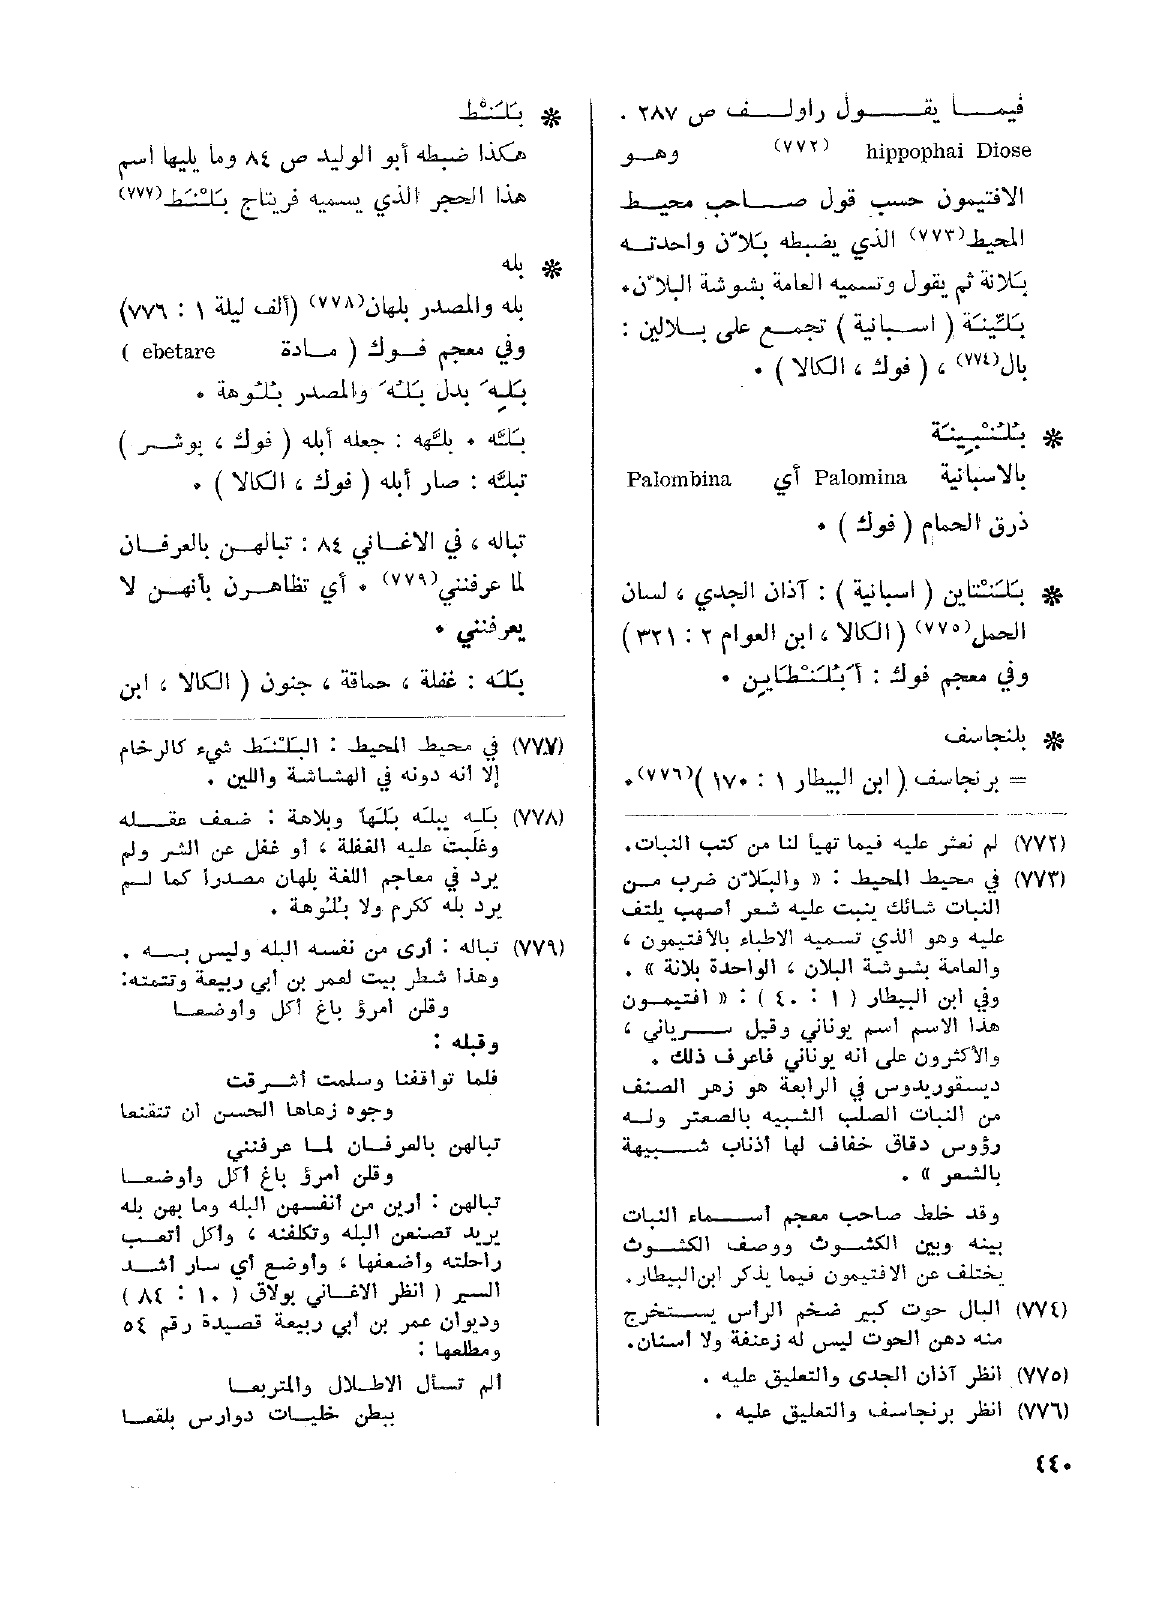 فيمــا يقــول راولــف ص ٢٨٧ .
hippophai Diose (٧٧٢) وهــو
الافتيمون حسب قول صــاحب محيــط
المحيط(٧٧٣) الذي يضبطه بَلّان واحدتــه
بَلانة ثم يقول وتسميه العامة بشوشة البلّان.
بَلَيِّنَة ( اسبانية ) تجمع على بــلالين :
بال(٧٧٤) ، ( فوك ، الكالا ) .
✻ بَلُنْبِينَة
بالاسبانية Palomina أي Palombina
ذرق الحمام ( فوك ) .
✻ بَلَنْتاين ( اسبانية ) : آذان الجدي ، لسان
الحمل(٧٧٥) (الكالا ، ابن العوام ٢ : ٣٢١)
وفي معجم فوك : أبْلَنْطاين .
✻ بلنجاسف
= برنجاسف ( ابن البيطار ١ : ١٧٠ )(٧٧٦).
(٧٧٢) لم نعثر عليه فيما تهيأ لنا من كتب النبات.
(٧٧٣) في محيط المحيط : « والبلّان ضرب مــن
النبات شائك ينبت عليه شعر أصهب يلتف
عليه وهو الذي تسميه الاطباء بالأفتيمون ،
والعامة بشوشة البلان ، الواحدة بلانة » .
وفي ابن البيطار ( ١ : ٤٠ ) : « افتيمــون
هذا الاسم اسم يوناني وقيل ســرياني ،
والأكثرون على انه يوناني فاعرف ذلك .
ديسقوريدوس في الرابعة هو زهر الصنف
من النبات الصلب الشبيه بالصعتر ولــه
رؤوس دقاق خفاف لها أذناب شــبيهة
بالشعر » .
وقد خلط صاحب معجم أســماء النبات
بينه وبين الكشــوث ووصف الكشــوث
يختلف عن الافتيمون فيما يذكر ابن البيطار.
(٧٧٤) البال حوت كبير ضخم الرأس يســتخرج
منه دهن الحوت ليس له زعنفة ولا أسنان.
(٧٧٥) انظر آذان الجدى والتعليق عليه .
(٧٧٦) انظر برنجاسف والتعليق عليه .
✻ بَلَنْط
هكذا ضبطه أبو الوليد ص ٨٤ وما يليها اسم
هذا الحجر الذي يسميه فريتاج بَلَنْط(٧٧٧)
✻ بله
بله والمصدر بلهان(٧٧٨) (ألف ليلة ١ : ٧٧٦)
وفي معجم فــوك ( مــادة ebetare )
بَلِهَ بدل بَلُهَ والمصدر بُلُوهة .
بَلَّه . بلّهه : جعله أبله ( فوك ، بوشــر )
تبلّه : صار أبله ( فوك ، الكالا ) .
تباله ، في الاغــاني ٨٤ : تبالهــن بالعرفــان
لما عرفنني(٧٧٩) . أي تظاهــرن بأنهــن لا
يعرفنني .
بَلَه : غفلة ، حماقة ، جنون ( الكالا ، ابن
(٧٧٧) في محيط المحيط : البَلَنْط شيء كالرخام
إلا انه دونه في الهشاشة واللين .
(٧٧٨) بَلِه يبلَه بَلَهاً وبلاهة : ضعف عقــله
وغلبت عليه الغفلة ، أو غفل عن الشر ولم
يرد في معاجم اللغة بلهان مصدراً كما لــم
يرد بله ككرم ولا بُلُوهة .
(٧٧٩) تباله : أرى من نفسه البله وليس بــه .
وهذا شطر بيت لعمر بن أبي ربيعة وتتمته:
وقلن امرؤ باغ أكل وأوضعــا
وقبله :
فلما تواقفنا وسلمت أشــرقت
وجوه زهاها الحسن ان تتقنعا
تبالهن بالعرفــان لمــا عرفنني
وقلن امرؤ باغ أكل وأوضعــا
تبالهن : أرين من أنفــهن البله وما بهن بله
يريد تصنعن البله وتكلفنه ، وأكل أتعــب
راحلته وأضعفها ، وأوضع أي سار أشــد
السير ( انظر الاغــاني بولاق ( ١٠ : ٨٤ )
وديوان عمر بن أبي ربيعة قصيدة رقم ٥٤
ومطلعها :
ألم تســأل الاطــلال والمتربعــا
ببطن خليــات دوارس بلقعــا
٤٤٠